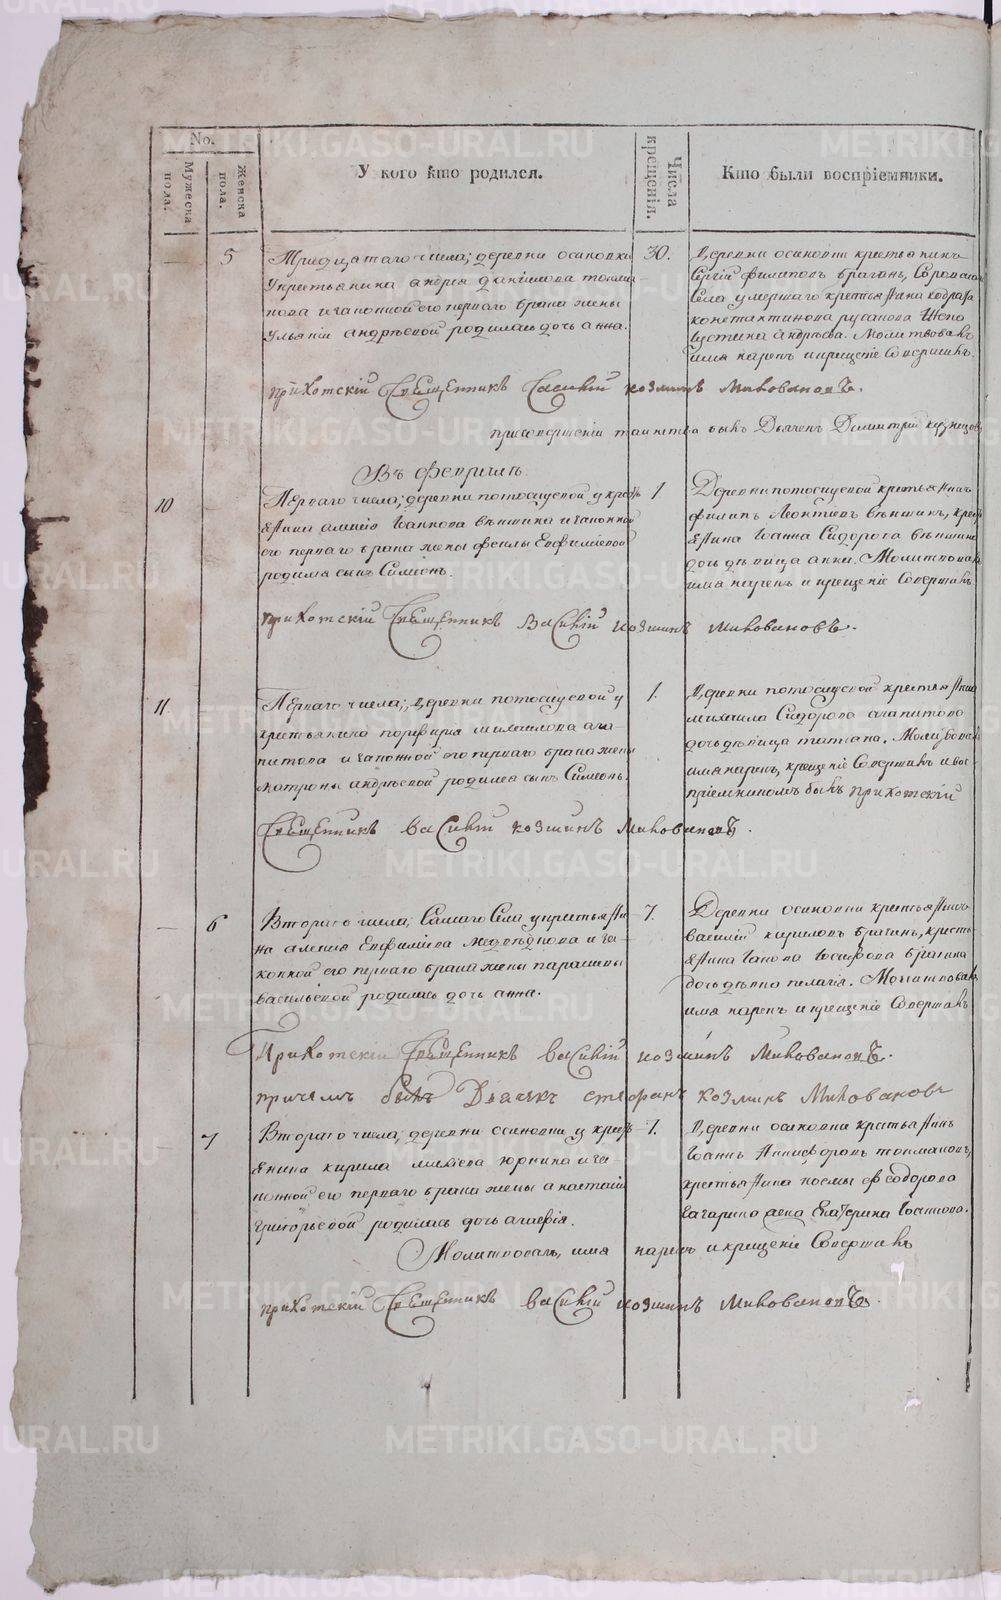 No.
Мужеска пола.
Женска пола.
У кого кто родился.
Числа крещенiя.
Кто были воспрiемники.
5
Тридцатаго числа; деревни осиновки
Укрестьянина андрея данилова
изаконной его перваго брака жены
Ульянiи андрѣевой родилась дочь анна.
30.
Деревни осиновки крестьянинъ
Сергiй филиповъ брагинъ,
Села умершаго крестьянина кодрата
константинова русакова
устинья андрѣева. Молитвовалъ
имя нарекъ икрещенiе Совершилъ
приходскiй Священникъ Василiй козминъ Миловановъ.
присовершенiи таинства былъ Дьячекъ Димитрiй кузнецовъ
Въ февралѣ.
10
Перваго числа; деревни потоскуевой укресть
янина алексiя Iоаннова вяткина изаконной
его перваго брака жены феклы Евфимiевой
родился сынъ Симеонъ.
1
Деревни потоскуевой крестьянинъ
филипъ Леонтiевъ вяткинъ, крест
янина Iоанна Сидорова вяткина
дочь дѣвица анна. Молитвовалъ
имя нарекъ и крещенiе Совершилъ
приходскiй Священникъ Василiй козминъ Миловановъ.
11.
Перваго числа; деревни потоскуевой у
крестьянина порфирiя михаилова ага-
питова изаконной его перваго брака жены
матроны андрѣевой родился сынъ Симеонъ.
1.
Деревни потоскуевой крестьянина
михаила Сидорова агапитова
дочь дѣвица татiана. Молитвовалъ
имя нарекъ, крещенiе Совершилъ и вос
прiемникомъ былъ приходскiй
Священникъ василiй козминъ Миловановъ.
6
Втораго числа, Самаго Села укрестьяни
на алексiя Евфимiева Медвѣдкова иза-
конной его перваго брака жены парасковьи
васильевой родилась дочь анна.
7.
Деревни осиновки крестьянинъ
василiй кириловъ брагинъ, кресть
янина Iакова Iосифова брагина
дочь дѣвка пелагiя. Молитвовалъ
имя нарекъ икрещенiе Совершилъ
приходскiй Священникъ василiй козминъ Миловановъ.
причемъ былъ Дьячекъ стефанъ козминъ Миловановъ
7
Втораго числа; деревни осиновки у кресть
янина кирила иза-
конной его перваго брака жены анастасiи
григорьевой родилась дочь агафiя.
7.
Деревни осиновки крестьянинъ
Iоаннъ Никифоровъ токмаковъ,
крестьянина косьмы феодорова
Екатерина Iоаннова.
Молитвовалъ, имя нарекъ икрещенiе Совершилъ
приходскiй Священникъ василiй козминъ Миловановъ.
METRIKI.GASO-URAL.RU